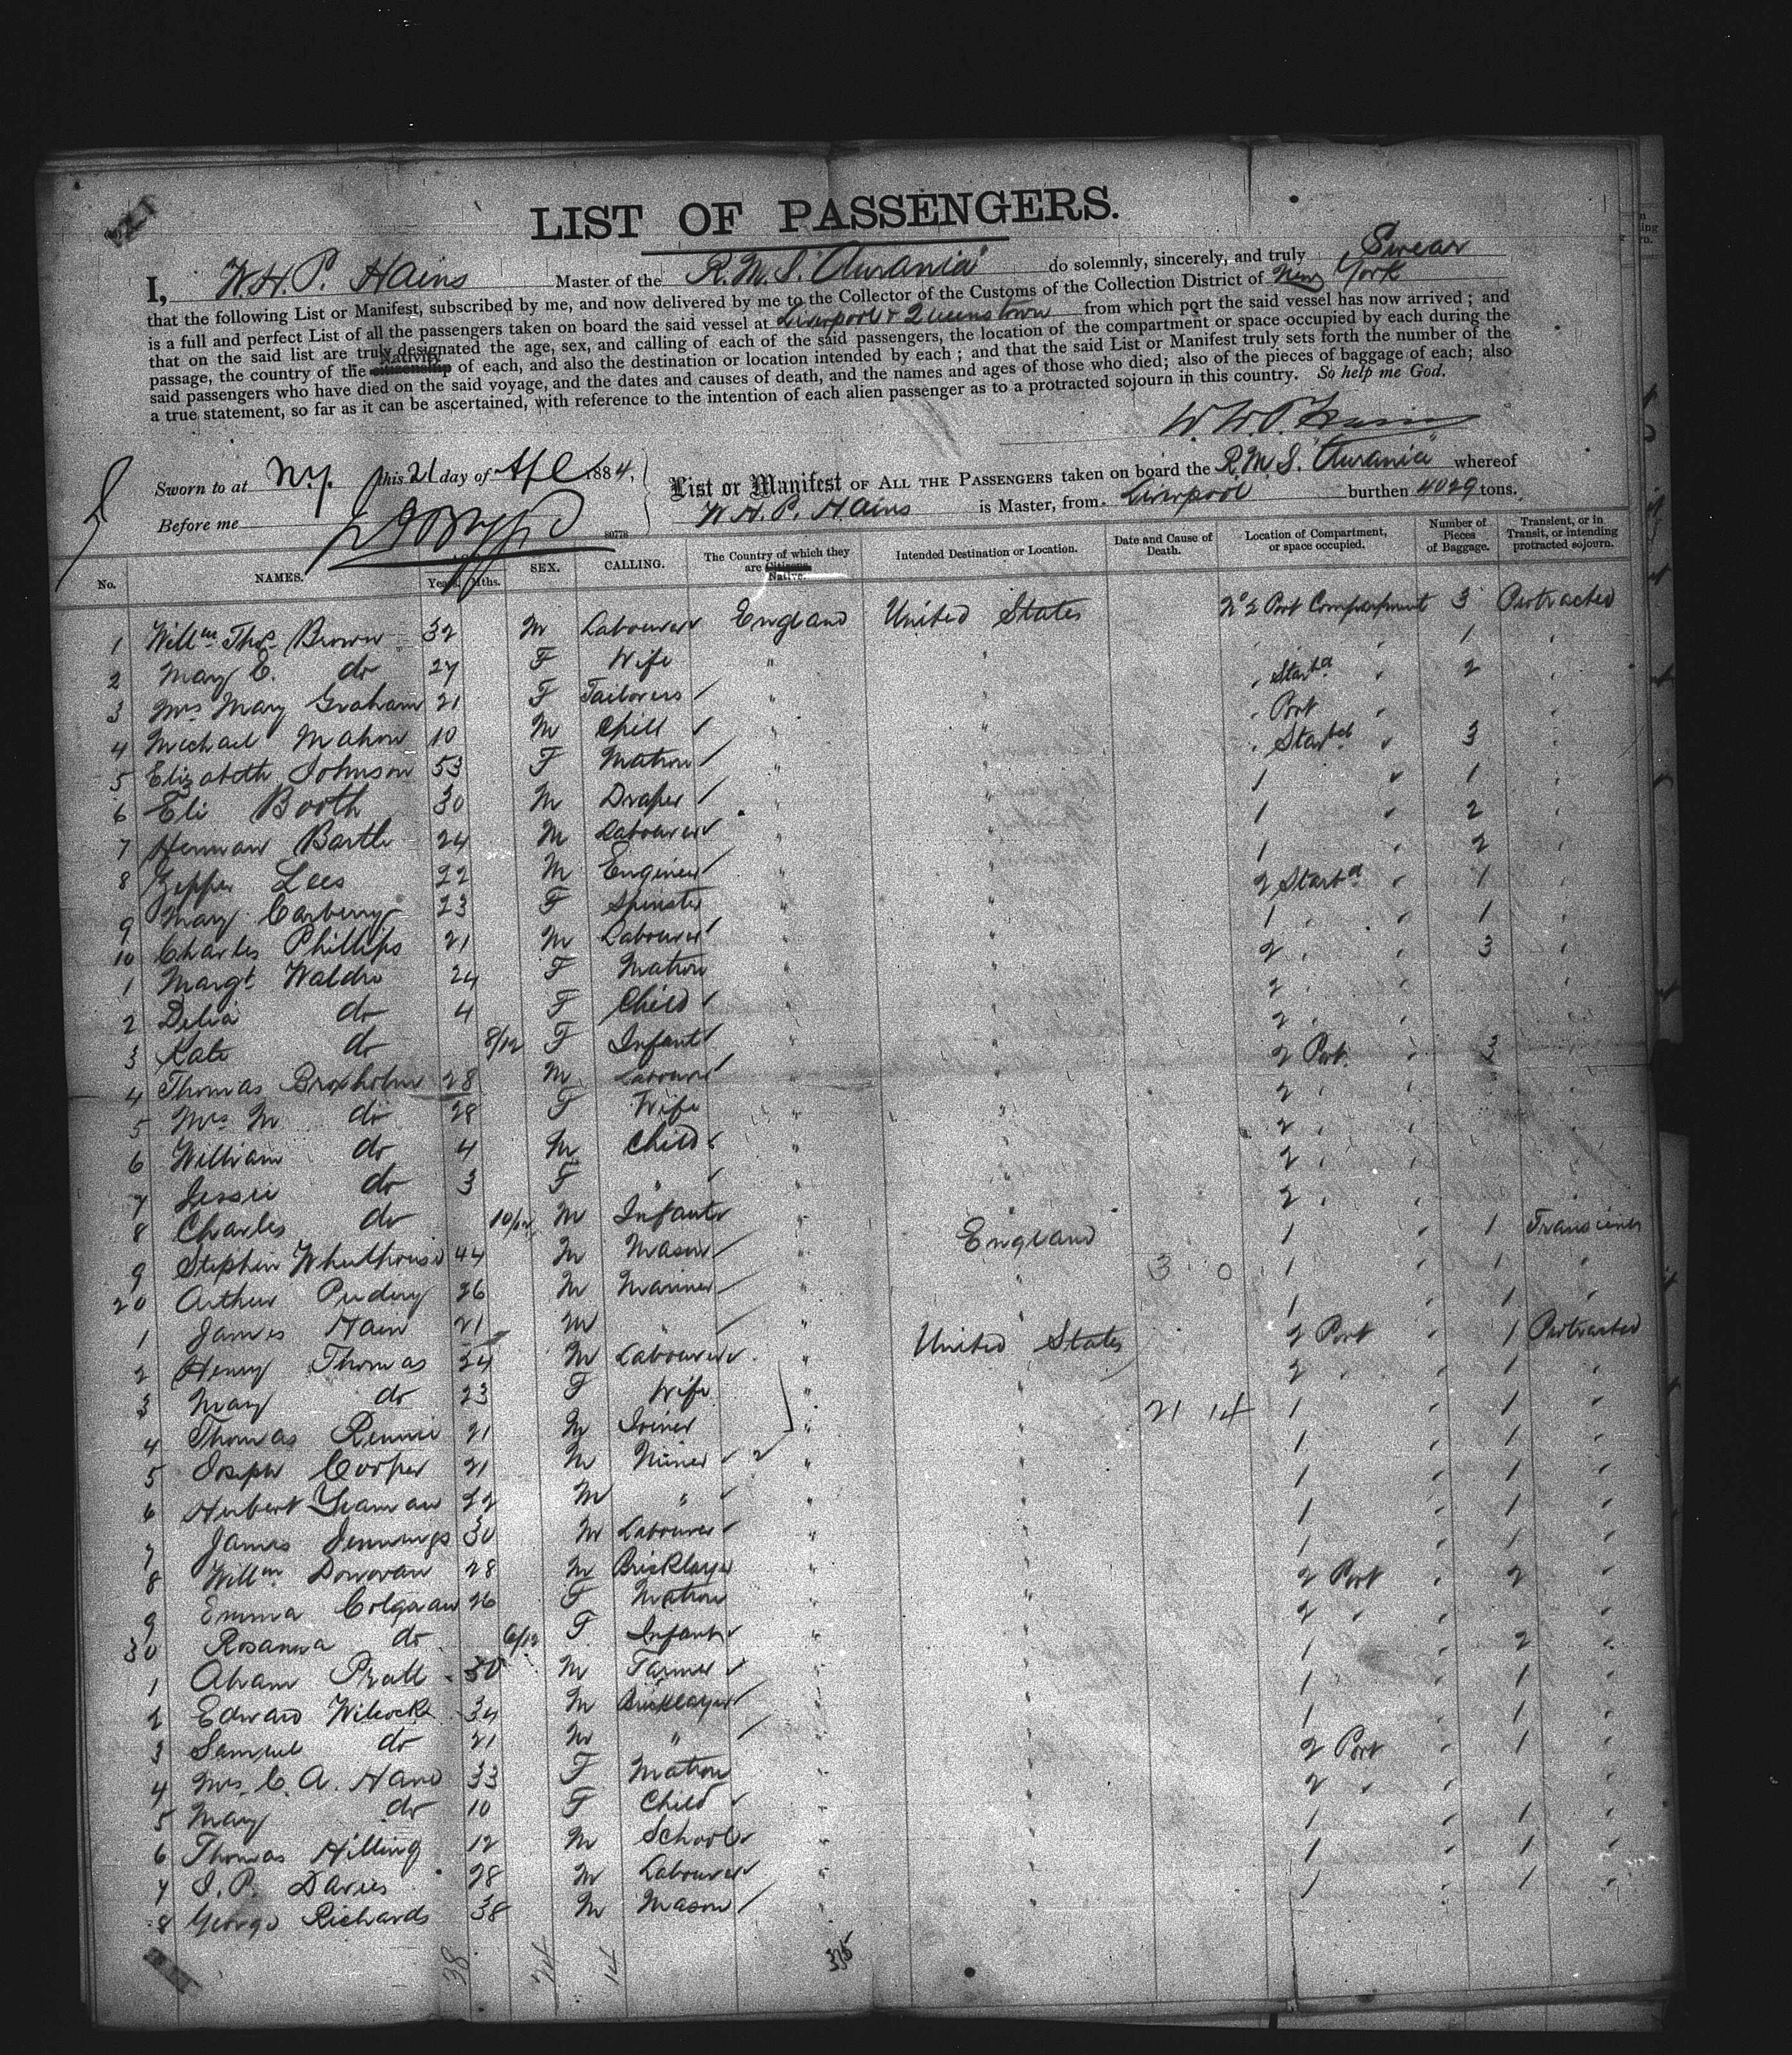 LIST OF PASSENGERS.
I, W. H. P. Hains Master of the R.M.S. "Aurania" do solemnly, sincerely, and truly Swear
that the following List or Manifest, subscribed by me, and now delivered by me to the Collector of the Customs of the Collection District of New York
is a full and perfect List of all the passengers taken on board the said vessel at Liverpool & Queenstown from which port the said vessel has now arrived; and
that on the said list are truly designated the age, sex, and calling of each of the said passengers, the location of the compartment or space occupied by each during the
passage, the country of the citizenship Nativity of each, and also the destination or location intended by each; and that the said List or Manifest truly sets forth the number of the
said passengers who have died on the said voyage, and the dates and causes of death, and the names and ages of those who died; also of the pieces of baggage of each; also
a true statement, so far as it can be ascertained, with reference to the intention of each alien passenger as to a protracted sojourn in this country. So help me God.
Sworn to at N.Y. this 21 day of Apl 1884,
Before me
80776
List or Manifest OF ALL THE PASSENGERS taken on board the R.M.S. "Aurania" whereof
W. H. P. Hains is Master, from Liverpool burthen 4029 tons.
No. NAMES. Years. Mths. SEX. CALLING. The Country of which they are Citizens. Native. Intended Destination or Location. Date and Cause of Death. Location of Compartment, or space occupied. Number of Pieces of Baggage. Transient, or in Transit, or intending protracted sojourn.
1 Willm Thos Brown 32 M Labourer England United States No 2 Port Compartment 3 Protracted
2 Mary E. do 27 F Wife " "
3 Mrs Mary Graham 21 F Tailoress " " " Starbd 2 "
4 Michael Mahon 10 M Child " " " Port "
5 Elizabeth Johnson 53 F Matron " " " Starbd 3 "
6 Eli Booth 30 M Draper " " 1 1 "
7 Herman Bartle 24 M Labourer " " 1 2 "
8 Lees 22 M Engineer " " 1 2 "
9 Mary Carberry 23 F Spinster " " 2 Starbd 1 "
10 Charles Phillips 21 M Labourer " " 1 1 "
1 Margt Waldro 24 F Matron " " 2 3 "
2 Delia do 4 F Child " " 2 "
3 Kate do 8/12 F Infant " " 2 "
4 Thomas Broxholm 28 M Labourer " " 2 Port 3 "
5 Mrs M do 28 F Wife " " 2 "
6 William do 4 M Child " " 2 "
7 Jessie do 3 F " " " 2 "
8 Charles do 10/12 M Infant " " 2 "
9 Stephen Wheelhouse 44 M Mason " England 1 1 Transient
20 Arthur 26 M Mariner " " 3 0 1 1 "
1 James Ham 21 M " " " 1 1 "
2 Henry Thomas 24 M Labourer " United States 2 Port 1 Protracted
3 Mary do 23 F Wife " " 2 1 "
4 Thomas Rennie 21 M Joiner " " 21 14 1 1 "
5 Joseph Cooper 21 M Miner 2 " " 1 1 "
6 Herbert Yeaman 22 M " " " 1 1 "
7 James Jennings 30 M Labourer " " 1 1 "
8 Willm Donovan 28 M Bricklayer " " 1 1 "
9 Emma Colgaan 26 F Matron " " 2 Port 2 "
30 Rosanna do 6/12 F Infant " " 2 "
1 Aham Pratt 50 M Farmer " " 1 2 "
2 Edward Wilcocks 34 M Bricklayer " " 1 1 "
3 Samuel do 21 M " " " 1 1 "
4 Mrs C. A. Hand 33 F Matron " " 2 Port 1 "
5 Mary do 10 F Child " " 2 "
6 Thomas Hilling 12 M School " " 1 1 "
7 J. P. Davies 28 M Labourer " " 1 1 "
8 George Richards 38 M Mason " " 1 1 "
38 24 14